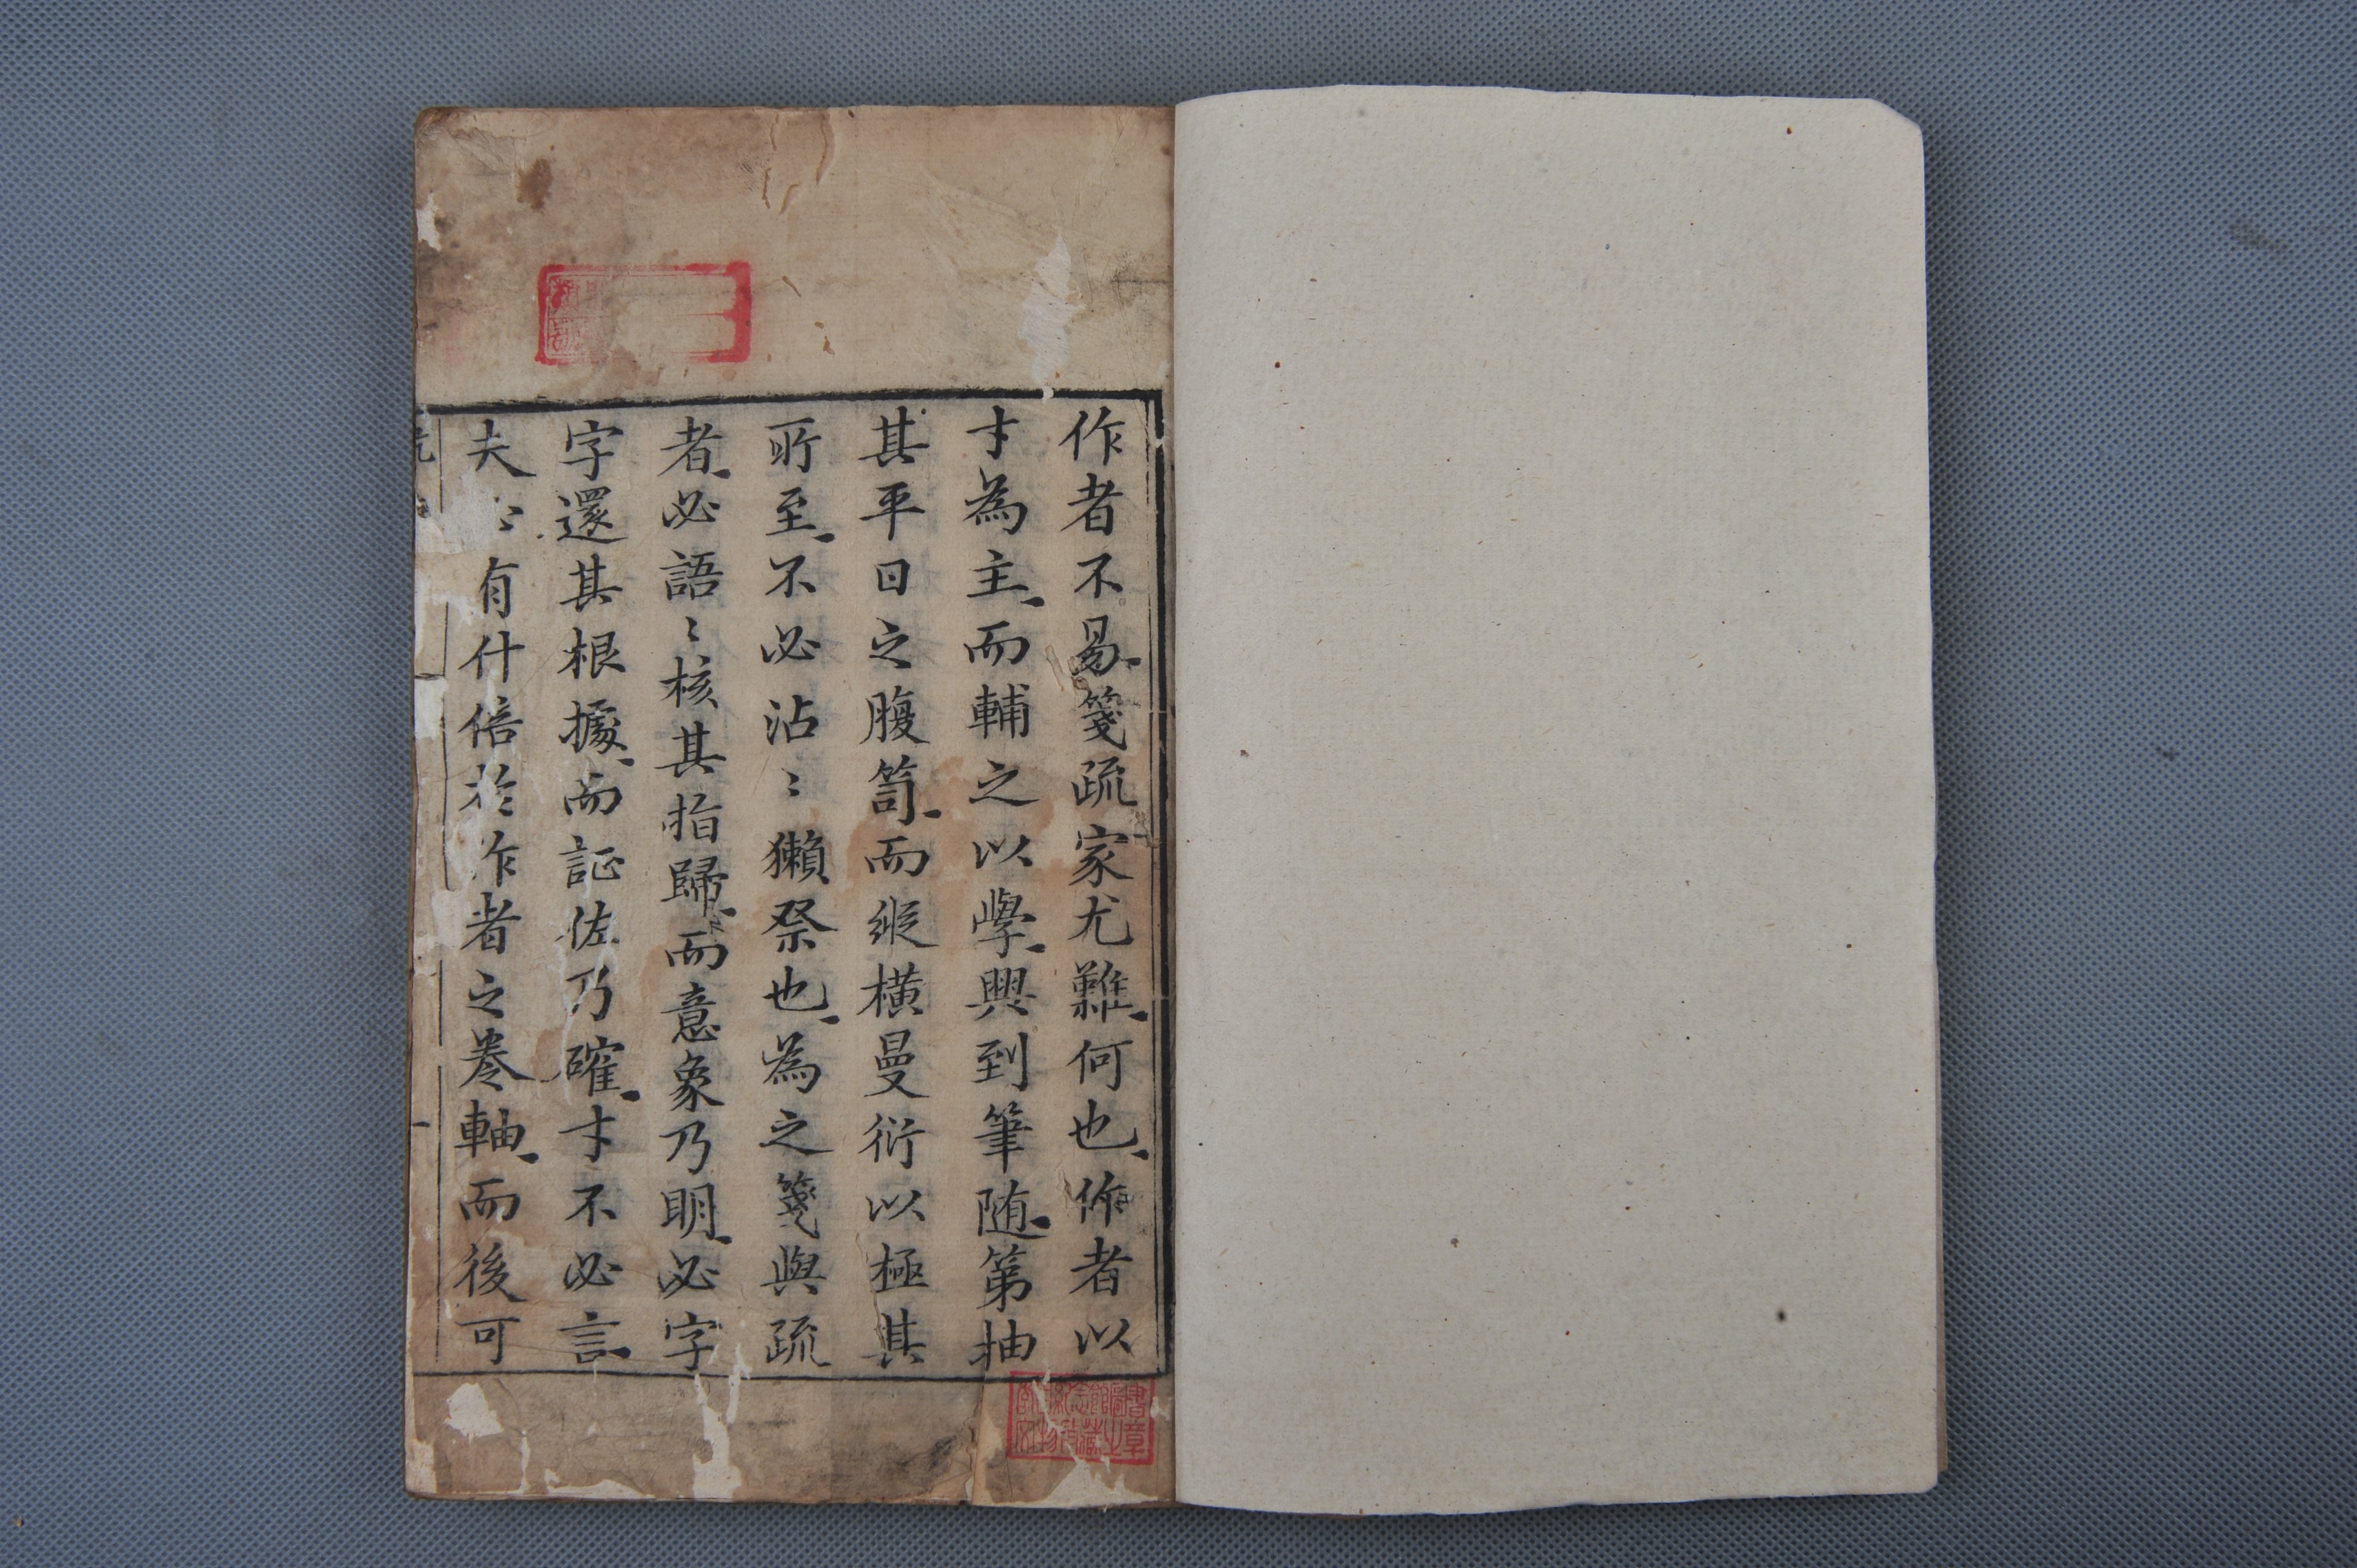 作者不易箋疏家尤難何也作者以
才為主而輔之以學興到筆随第抽
其平日之腹笥而縱橫曼衍以極其
所至不必沾〻獺祭也為之箋與疏
者必語〻核其指歸而意象乃明必字
字還其根據而証佐乃確才不必言
夫〻有什倍於作者之卷軸而後可